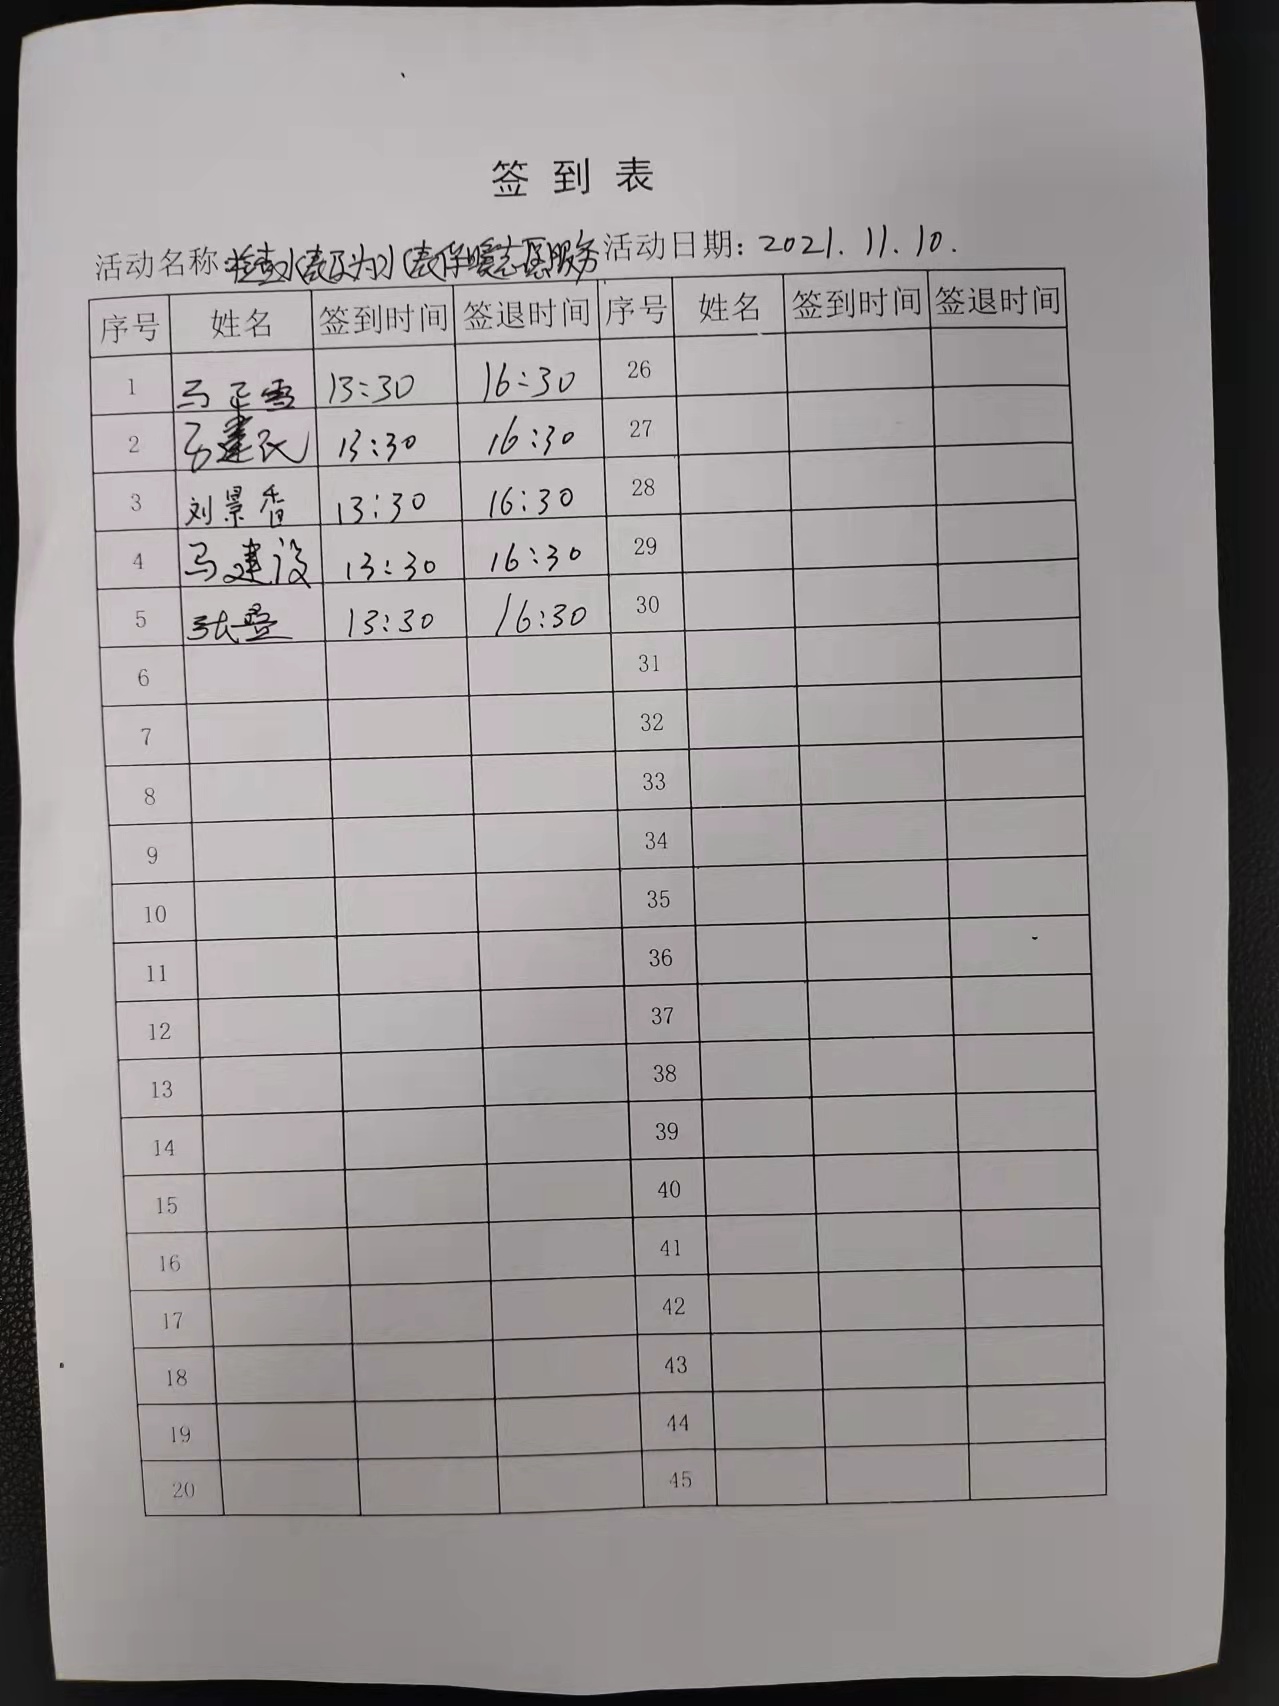 签到表
活动名称:检查水表及为水表保暖志愿服务 活动日期: 2021.11.10.
序号 姓名 签到时间 签退时间 序号 姓名 签到时间 签退时间
1 马正雪 13:30 16:30 26
2 马建民 13:30 16:30 27
3 刘景香 13:30 16:30 28
4 马建设 13:30 16:30 29
5 张 13:30 16:30 30
6 31
7 32
8 33
9 34
10 35
11 36
12 37
13 38
14 39
15 40
16 41
17 42
18 43
19 44
20 45